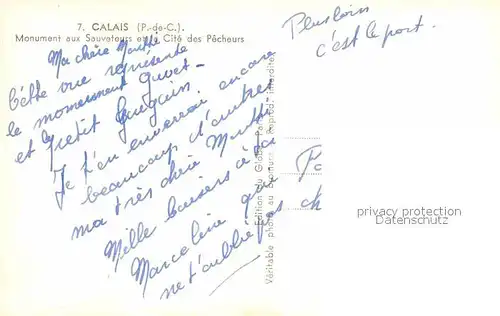 7. CALAIS (P.-de-C.).
Monument aux Sauveteurs et la Cité des Pêcheurs
Plus loin
c'est le port.
Ma chère Marthe
Cette vue représente
le monument
et le petit
Je t'en enverrai encore
beaucoup d'autres
ma très chère Marthe
Mille baisers à toi
Marceline qui
ne t'oublie pas
Edition du Globe, Paris
Véritable photo au Bromure - Reprod. interdite
privacy protection
Datenschutz